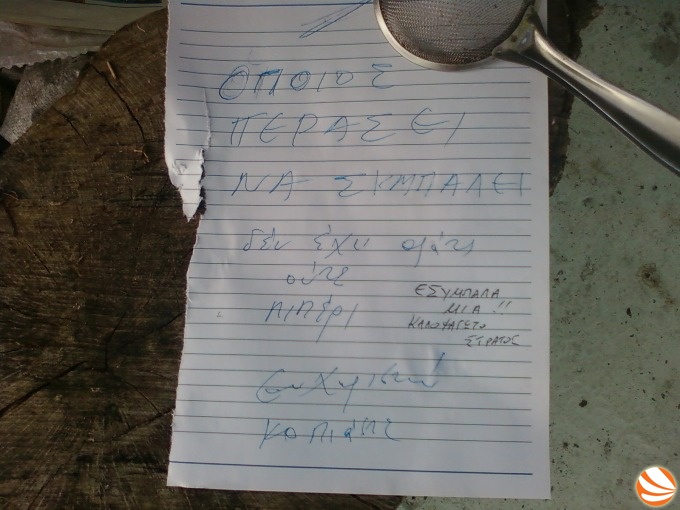 ΟΠΟΙΟΣ
ΠΕΡΑΣΕΙ
ΝΑ ΣΥΜΠΑΛΕΙ
δέν έχει αλάτι
ούτε
πιπέρι
ΕΣΥΜΠΑΛΑ
ΜΙΑ !!
ΚΑΛΟΦΑΓΩΤΟ
ΣΤΡΑΤΟΣ
κοπιάστε